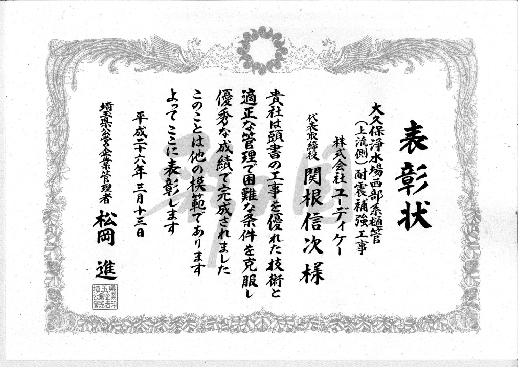 表彰状
大久保浄水場西部系植管
(上流側)耐震補強工事
株式会社 ユーディケー
代表取締役 関根信次 様
貴社は頭書の工事を優れた技術と
適正な管理で困難な条件を克服し
優秀な成績で完成されました
このことは他の模範であります
よってここに表彰します
平成二十六年三月十三日
埼玉県公営企業管理者 松岡 進